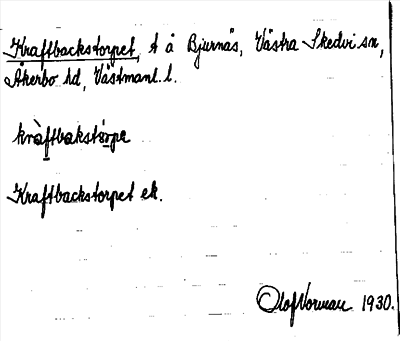 Kraftbackstorpet, t å Bjurnäs, Västra Skedvi sn,
Åkerbo hd, Västmanl. l.
kràftbakstórpe
Kraftbackstorpet ek.
Olof Norman 1930.